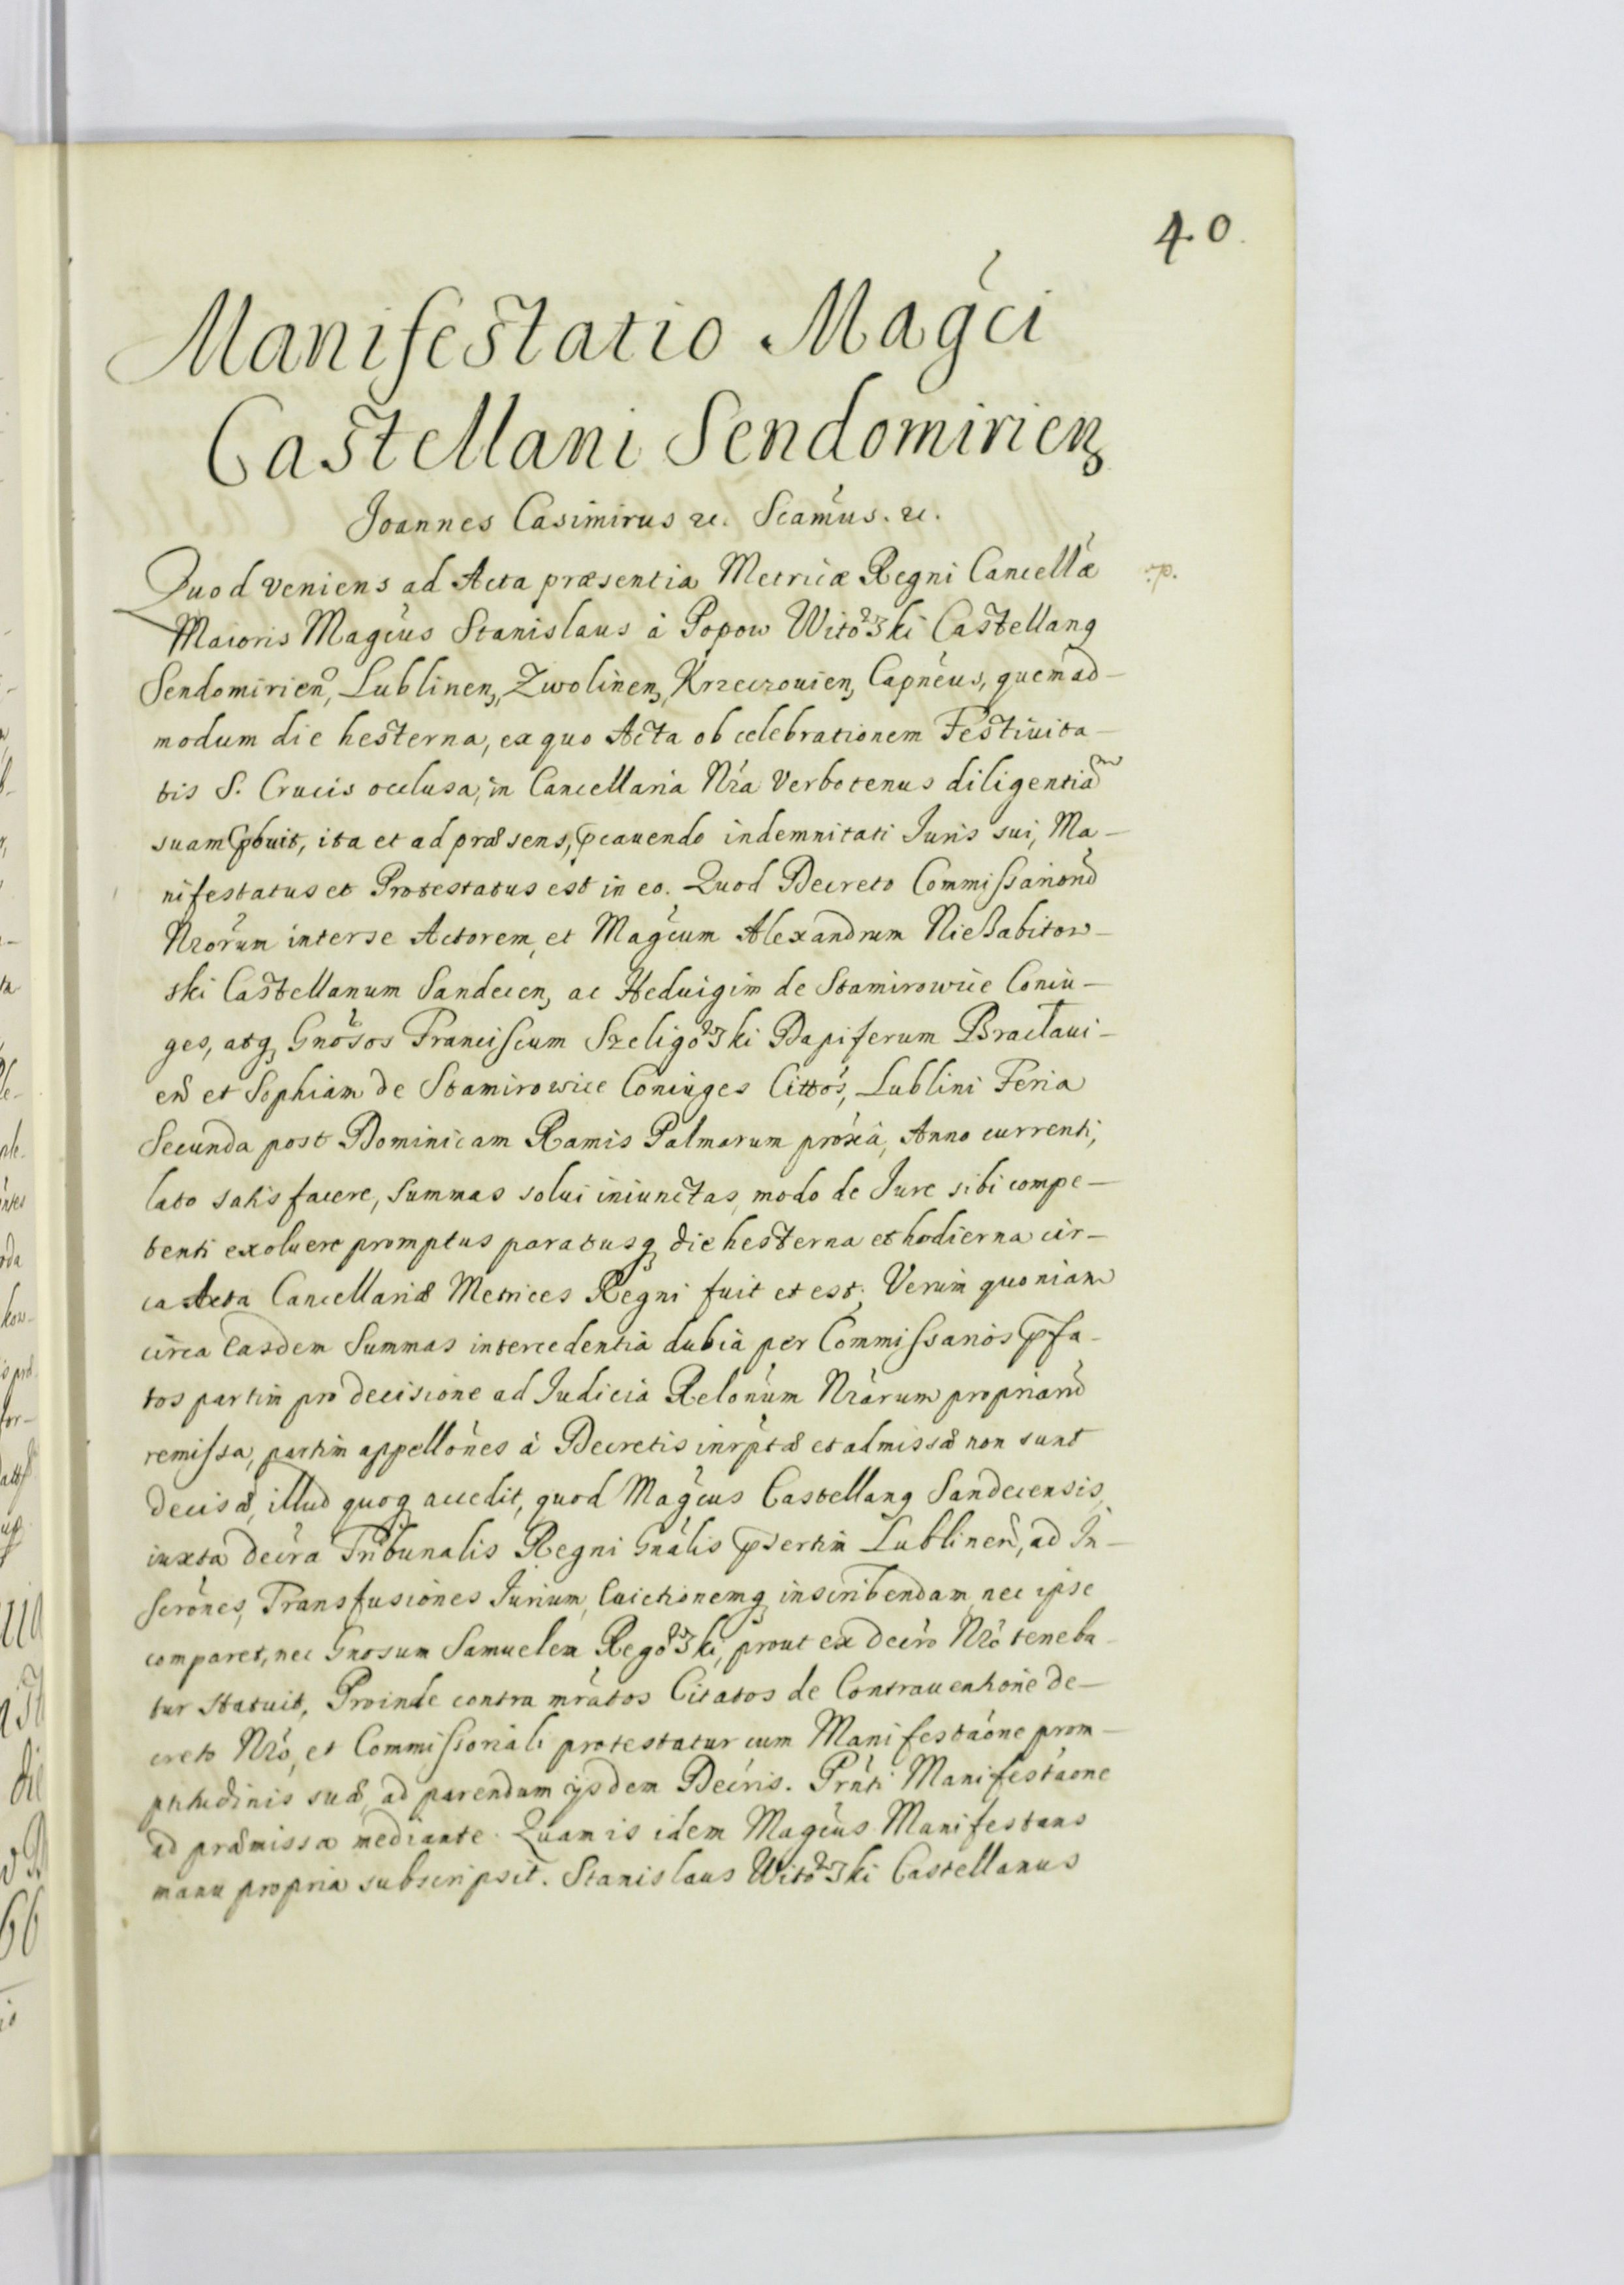 40.
Manifestatio Magći
Castellani Sendomirienȝ
Joannes Casimirus ꝛc. Scamús. ꝛc.
Quod veniens ad Acta præsentia Metricæ Regni Cancellǽ :p.
Maioris Magćus Stanislaus à Popow Witowski Castellanꝰ
Sendomirien, Lublinenȝ, Zwolinenȝ, Krzeczouienȝ Capnéus, quemad-
modum die hesterna, ex quo Acta ob celebrationem Festiuita-
tis S. Crucis occlusa, in Cancellaria Nra verbotenus diligentiam
suam pbuit, ita et ad præsens, pcauendo indemnitati Juris sui, Ma-
nifestatus et Protestatus est in eo. Quod Decreto Commissarionɔ
Nrorum interse Actorem, et Magćum Alexandrum Nieszabitow-
ski Castellanum Sandecenȝ ac Heduigim de Stamirowice Coniu-
ges, atqȝ Gnósos Franciscum Szeligowski Dapiferum Bractaui-
en et Sophiam de Stamirowice Coniuges Cittós, Lublini Feria
Secunda post Dominicam Ramis Palmarum próxa, Anno currenti,
lato satisfacere, summas solui iniunctas, modo de Jure sibi compe-
tenti exoluere promptus paratusqȝ die hesterna et hodierna cir-
ca Acta Cancellariæ Metrices Regni fuit et est; Verum quoniam
circa easdem Summas intercedentia dubia per Commissarios pfa-
tos partim pro decisione ad Judicia Relónum Nrárum propriarū
remissa, partim appellónes à Decretis inrptæ et admissæ non sunt
decisæ, illud quoqȝ accedit, quod Magćus Castellanꝰ Sandecensis,
iuxta decra Tribunalis Regni Gnális psertim Lublinen, ad In-
scrónes, Transfusiones Jurium, euictionemqȝ inscribendam, nec ipse
comparet, nec Gnosum Samuelem Regowski, prout ex decro Nro teneba-
tur statuit, Proinde contra mrátos Citatos de Contrauentione de-
creto Nró, et Commissoriali protestatur cum Manifestaóne prom-
ptitudinis suæ, ad parendum ijsdem Decris. Prnti Manifestaone
ad præmissa mediante. Quam is idem Magćus Manifestans
manu propria subscripsit. Stanislaus Witowski Castellanus